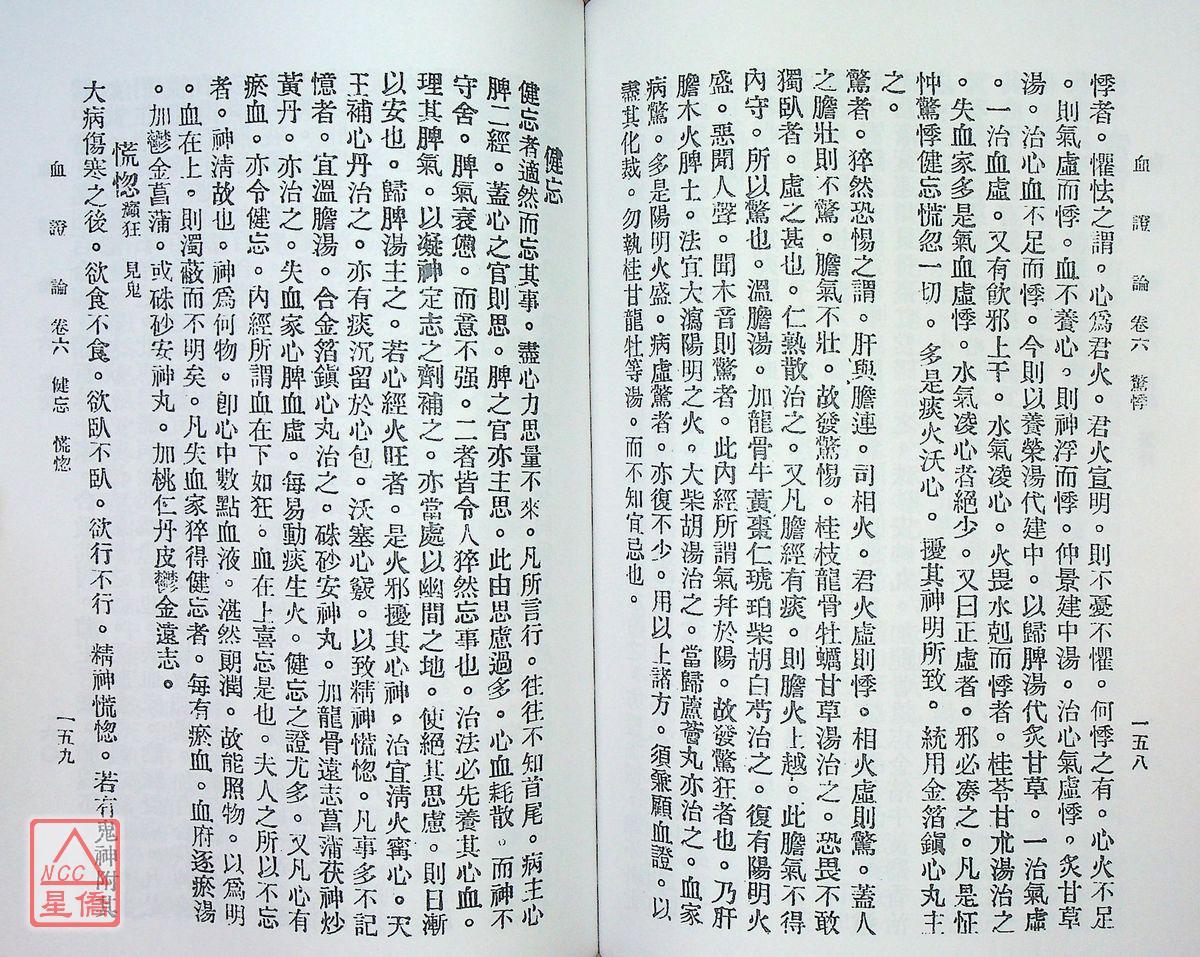 血證論 卷六 驚悸 一五八
悸者。懼怯之謂。心爲君火。君火宣明。則不憂不懼。何悸之有。心火不足
。則氣虛而悸。血不養心。則神浮而悸。仲景建中湯。治心氣虛悸。炙甘草
湯。治心血不足而悸。今則以養榮湯代建中。以歸脾湯代炙甘草。一治氣虛
。一治血虛。又有飲邪上干。水氣凌心。火畏水剋而悸者。桂苓甘朮湯治之
。失血家多是氣血虛悸。水氣凌心者絕少。又曰正虛者。邪必凑之。凡是怔
忡驚悸健忘慌忽一切。多是痰火沃心。擾其神明所致。統用金箔鎭心丸主
之。
驚者。猝然恐惕之謂。肝與膽連。司相火。君火虛則悸。相火虛則驚。蓋人
之膽壯則不驚。膽氣不壯。故發驚惕。桂枝龍骨牡蠣甘草湯治之。恐畏不敢
獨臥者。虛之甚也。仁熟散治之。又凡膽經有痰。則膽火上越。此膽氣不得
內守。所以驚也。溫膽湯。加龍骨牛黃棗仁琥珀柴胡白芍治之。復有陽明火
盛。惡聞人聲。聞木音則驚者。此內經所謂氣幷於陽。故發驚狂者也。乃肝
膽木火脾土。法宜大瀉陽明之火。大柴胡湯治之。當歸蘆薈丸亦治之。血家
病驚。多是陽明火盛。病虛驚者。亦復不少。用以上諸方。須兼顧血證。以
盡其化裁。勿執桂甘龍牡等湯。而不知宜忌也。
健忘
健忘者適然而忘其事。盡心力思量不來。凡所言行。往往不知首尾。病主心
脾二經。蓋心之官則思。脾之官亦主思。此由思慮過多。心血耗散。而神不
守舍。脾氣衰憊。而意不强。二者皆令人猝然忘事也。治法必先養其心血。
理其脾氣。以凝神定志之劑補之。亦當處以幽間之地。使絕其思慮。則日漸
以安也。歸脾湯主之。若心經火旺者。是火邪擾其心神。治宜淸火寧心。天
王補心丹治之。亦有痰沉留於心包。沃塞心竅。以致精神慌惚。凡事多不記
憶者。宜溫膽湯。合金箔鎭心丸治之。硃砂安神丸。加龍骨遠志菖蒲茯神炒
黃丹。亦治之。失血家心脾血虛。每易動痰生火。健忘之證尤多。又凡心有
瘀血。亦令健忘。內經所謂血在下如狂。血在上喜忘是也。夫人之所以不忘
者。神淸故也。神爲何物。卽心中數點血液。湛然朗潤。故能照物。以爲明
。血在上。則濁蔽而不明矣。凡失血家猝得健忘者。每有瘀血。血府逐瘀湯
。加鬱金菖蒲。或硃砂安神丸。加桃仁丹皮鬱金遠志。
慌惚 癲狂 見鬼
大病傷寒之後。欲食不食。欲臥不臥。欲行不行。精神慌惚。若有鬼神附其
血證論 卷六 健忘 慌惚 一五九
NCC
星僑